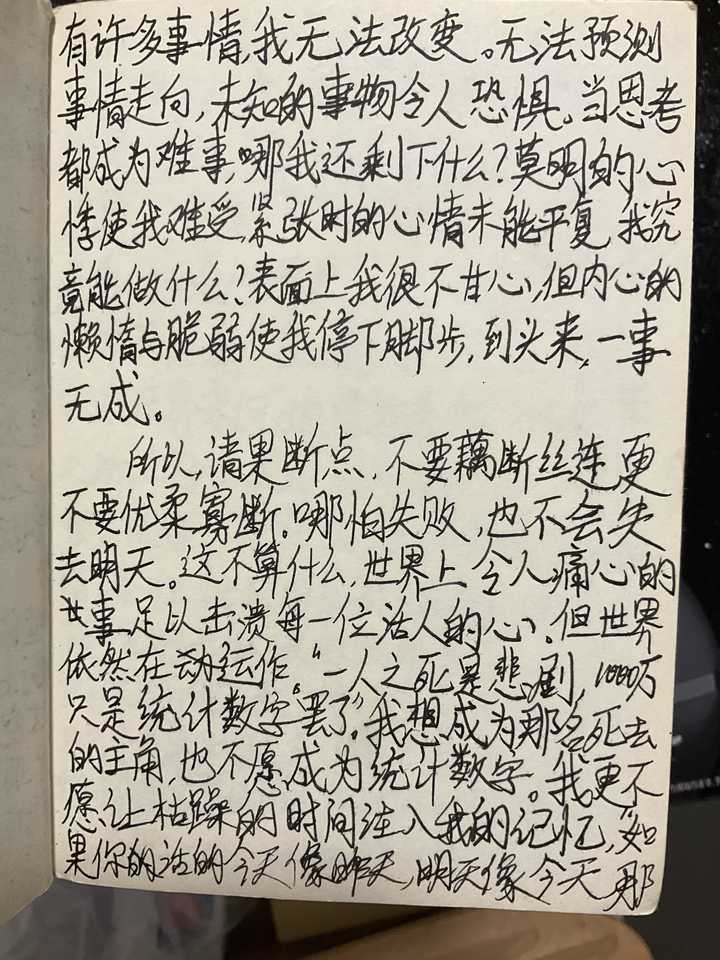 有许多事情,我无法改变。无法预测
事情走向,未知的事物令人恐惧。当思考
都成为难事,哪我还剩下什么?莫明的心
悸使我难受,紧张时的心情未能平复,我究
竟能做什么?表面上我很不甘心,但内心的
懒惰与脆弱使我停下脚步,到头来,一事
无成。
所以,请果断点,不要藕断丝连,更
不要优柔寡断。哪怕失败,也不会失
去明天。这不算什么,世界上令人痛心的
世事足以击溃每一位活人的心。但世界
依然在动运作。“一人之死是悲剧,1000万
只是统计数字罢了”。我想成为那名死去
的主角,也不愿成为统计数字。我更不
愿让枯躁的时间注入我的记忆,“如
果你的活的今天像昨天,明天像今天,那